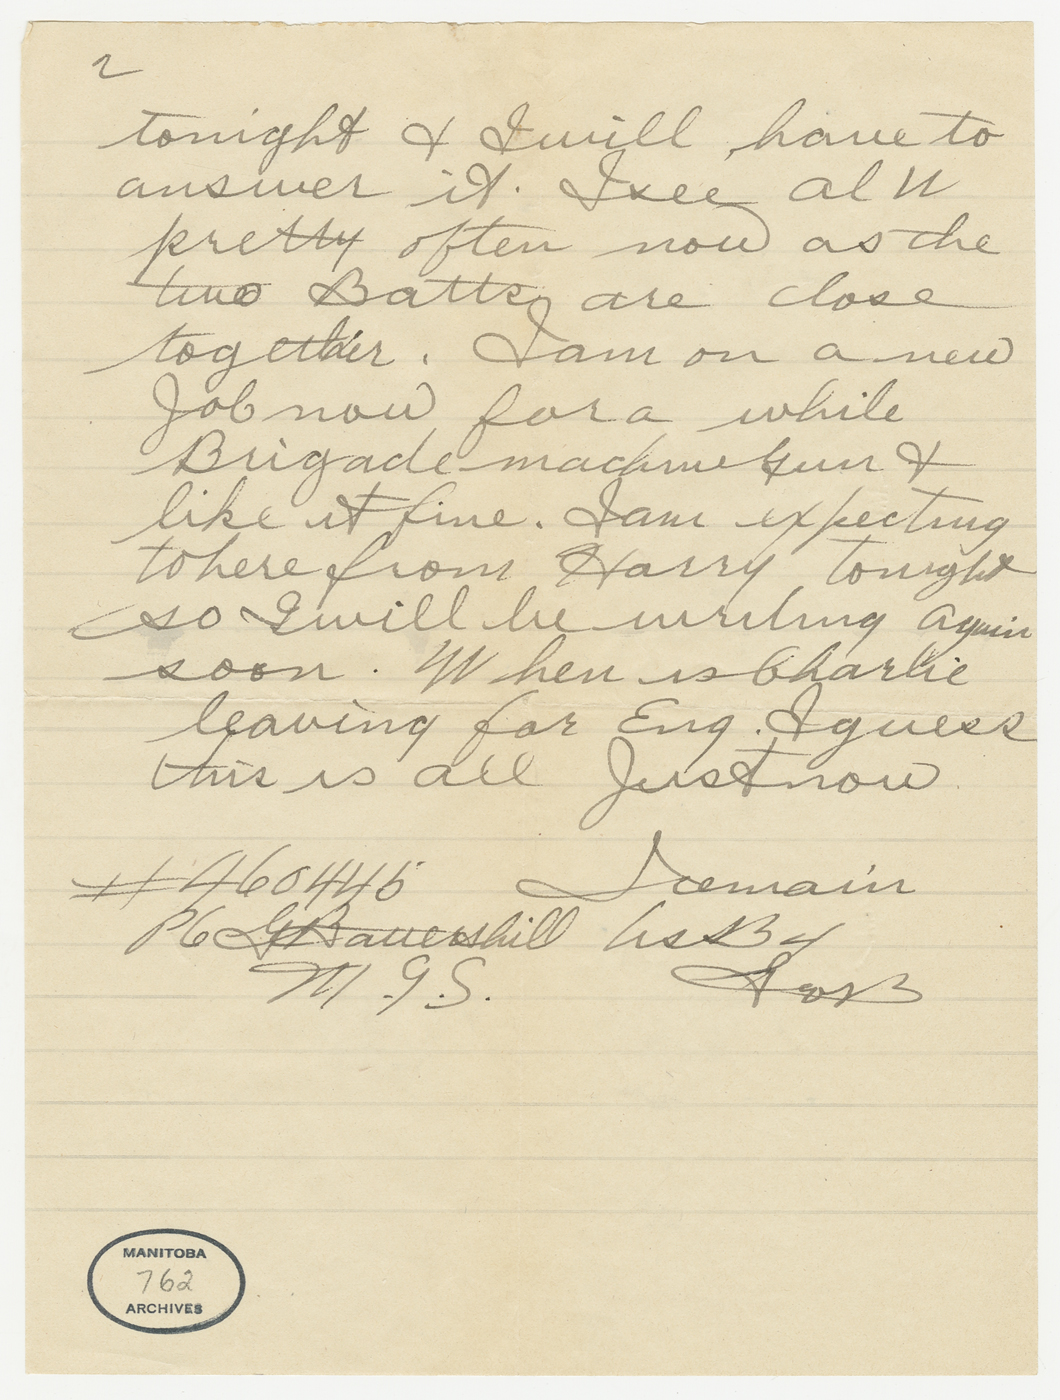 2
tonight & I will have to
answer it. I see Al W
pretty often now as the
two Batts are close
together. I am on a new
Job now for a while
Brigade machine Gun &
like it fine. I am expecting
to here from Harry tonight
so I will be writing again
soon. When is Charlie
leaving for Eng. I guess
this is all Just now
#460445 I remain
G Battershill as
M.G.S.
MANITOBA
762
ARCHIVES